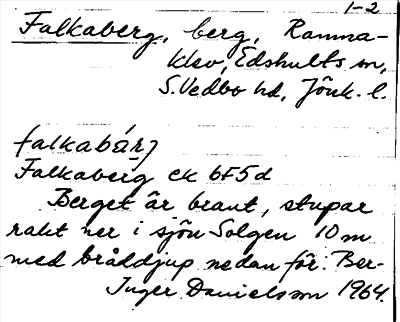 1-2
Falkaberg, berg, Ramma-
klev, Edshults sn,
S. Vedbo hd, Jönk. l.
falkabárj
Falkaberg ek 6F5d
Berget är brant, stupar
rakt ner i sjön Solgen 10 m
med bråddjup nedan för. Ber-
Inger Danielsson 1964.